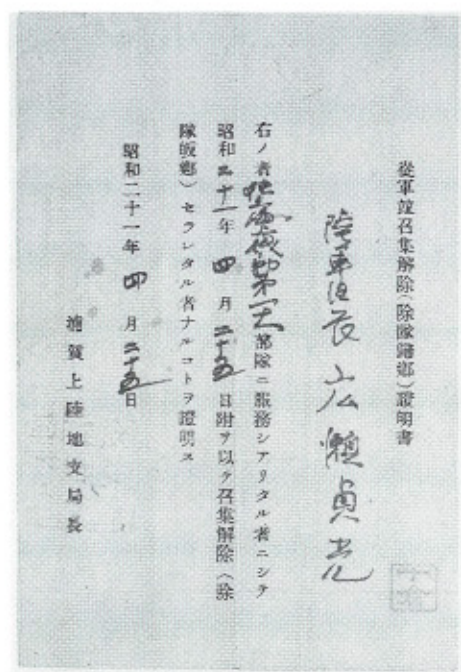 從軍竝召集解除(除隊歸鄕)證明書
陸軍伍長 広瀬貞光
右ノ者 部隊ニ服務シアリタル者ニシテ
昭和二十一年四月二十五日附ヲ以テ召集解除(除
隊皈鄕)セラレタル者ナルコトヲ證明ス
昭和二十一年四月二十五日
浦賀上陸地支局長